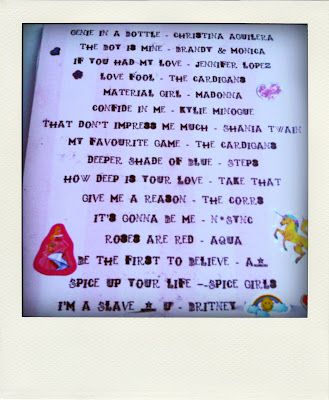 GENIE IN A BOTTLE - CHRISTINA AGUILERA
THE BOY IS MINE - BRANDY & MONICA
IF YOU HAD MY LOVE - JENNIFER LOPEZ
LOVE FOOL - THE CARDIGANS
MATERIAL GIRL - MADONNA
CONFIDE IN ME - KYLIE MINOGUE
THAT DON'T IMPRESS ME MUCH - SHANIA TWAIN
MY FAVOURITE GAME - THE CARDIGANS
DEEPER SHADE OF BLUE - STEPS
HOW DEEP IS YOUR LOVE - TAKE THAT
GIVE ME A REASON - THE CORRS
IT'S GONNA BE ME - N*SYNC
ROSES ARE RED - AQUA
BE THE FIRST TO BELIEVE - A
SPICE UP YOUR LIFE --SPICE GIRLS
I'M A SLAVE U - BRITNEY